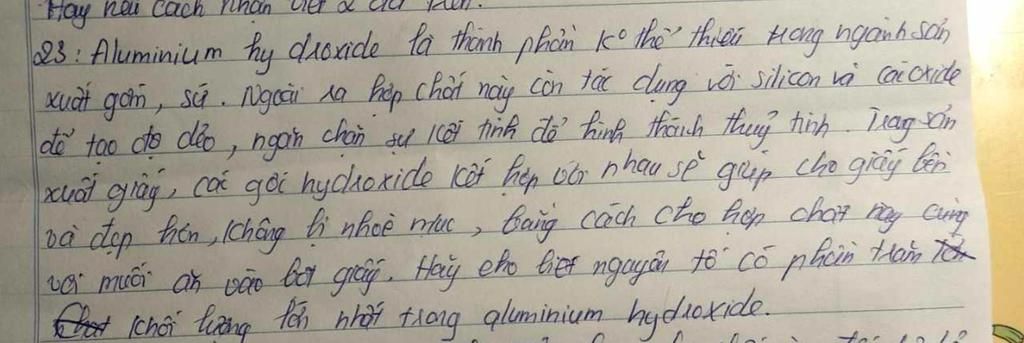 Hãy nêu cách nhận biết 2
23: Aluminium hydroxide là thành phần kº thể thiếu trong ngành sản
xuất gốm, sứ. Ngoài ra hợp chất này còn tác dụng với silicon và các oxide
để tạo độ dẻo, ngăn chặn sự kết tinh để hình thành thuỷ tinh. Trong sản
xuất giấy, các gốc hydroxide kết hợp với nhau sẽ giúp cho giấy bền
và đẹp hơn, không bị nhoè mực, bằng cách cho hợp chất này cùng
với muối ăn vào bột giấy. Hãy cho biết nguyên tố có phần trăm
khối lượng lớn nhất trong aluminium hydroxide.